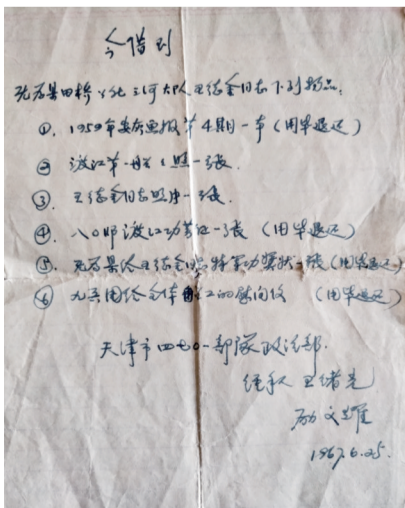 今借到
无为县田桥公社三河大队王德金同志下列物品:
①. 1959年安庆画报第4期一本(用毕退还)
② 渡江第一船 照一张.
③. 王德金同志照片一张.
④. 八〇师渡江功劳证一张(用毕退还)
⑤. 无为县给王德金 特等功奖状一张(用毕退还)
⑥ 九兵团给全体船工的慰问信 (用毕退还)
天津市四七〇一部队政治部.
经手 王绪光
励文耀
1967.6.25.